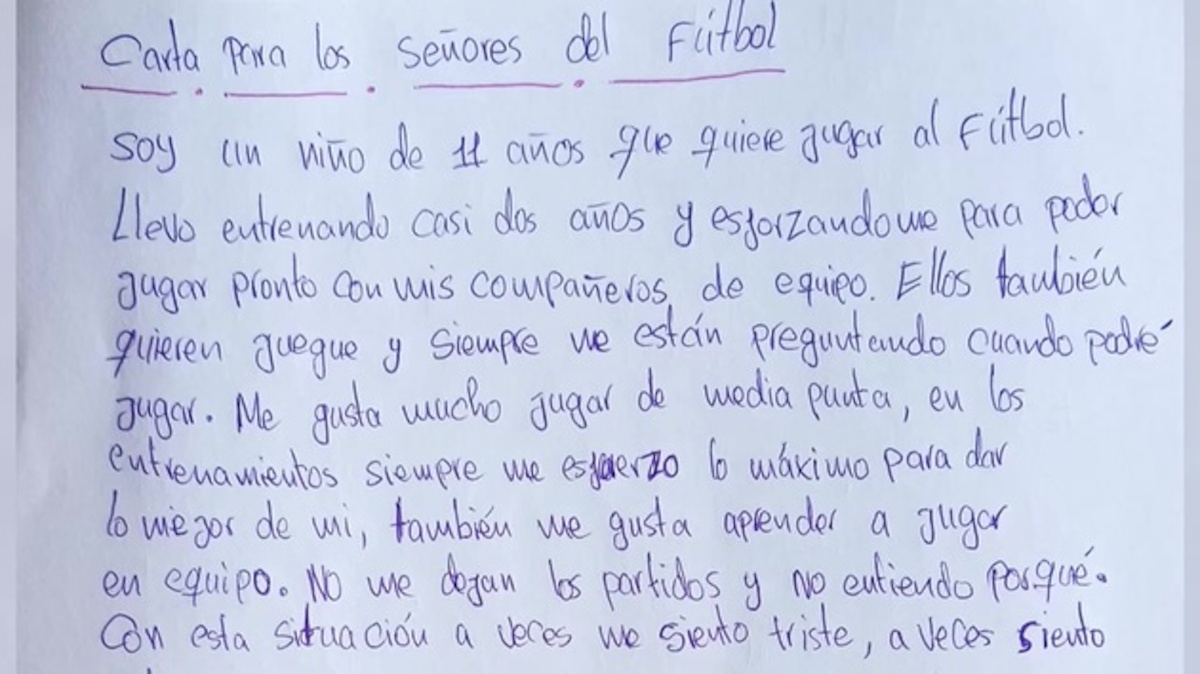 Carta para los señores del Fútbol
Soy un niño de 11 años que quiere jugar al Fútbol.
Llevo entrenando casi dos años y esforzandome para poder
jugar pronto con mis compañeros de equipo. Ellos también
quieren juegue y siempre me están preguntando cuando podré
jugar. Me gusta mucho jugar de media punta, en los
entrenamientos siempre me esfuerzo lo máximo para dar
lo mejor de mi, también me gusta aprender a jugar
en equipo. No me dejan los partidos y no entiendo porqué.
Con esta situación a veces me siento triste, a veces siento